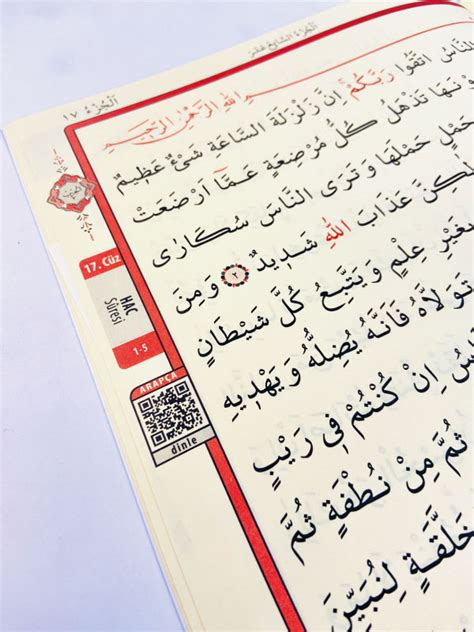 اَلْجُزْءُ السَّابِعَ عَشَرَ
اَلْجُزْءُ ١٧
اللهِ الرَّحْمٰنِ الرَّحِيمِ
النَّاسُ اتَّقُوا رَبَّكُمْۚ اِنَّ زَلْزَلَةَ السَّاعَةِ شَيْءٌ عَظِيمٌ
وْنَهَا تَذْهَلُ كُلُّ مُرْضِعَةٍ عَمَّٓا اَرْضَعَتْ
حَمْلٍ حَمْلَهَا وَتَرَى النَّاسَ سُكَارٰى
لٰكِنَّ عَذَابَ اللهِ شَدِيدٌ ٢ وَمِنَ
بِغَيْرِ عِلْمٍ وَيَتَّبِعُ كُلَّ شَيْطَانٍ
تَوَلَّاهُ فَاَنَّهُ يُضِلُّهُ وَيَهْدِيهِ
اِنْ كُنْتُمْ فِى رَيْبٍ
ثُمَّ مِنْ نُطْفَةٍ ثُمَّ
خَلَّقَةٍ لِنُبَيِّنَ
17. Cüz
HAC
Sûresi
1-5
ARAPÇA
dinle